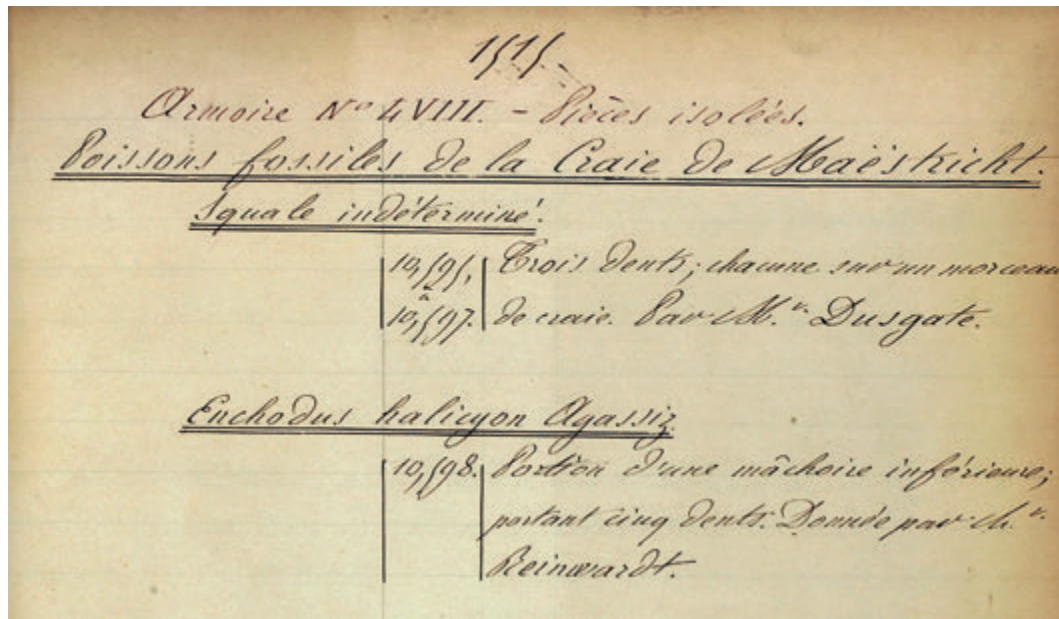 1515.
Armoire No LVIII. - Pièces isolées.
Poissons fossiles de la Craie de Maëstricht.
Squale indéterminé.
10,595. Trois dents; chacune sur un morceau
à
10,597. de craie. Par Mr. Dusgate.
Enchodus halicyon Agassiz
10,598. Portion d'une mâchoire inférieure;
portant cinq dents. Donnée par Mr.
Reinwardt.